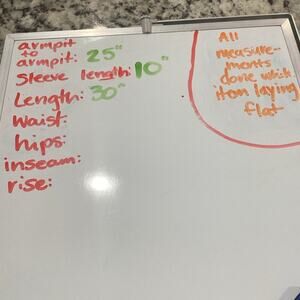 armpit
to
armpit: 25"
Sleeve length: 10"
Length: 30"
Waist:
hips:
inseam:
rise:
All
measure-
ments
done while
item laying
flat